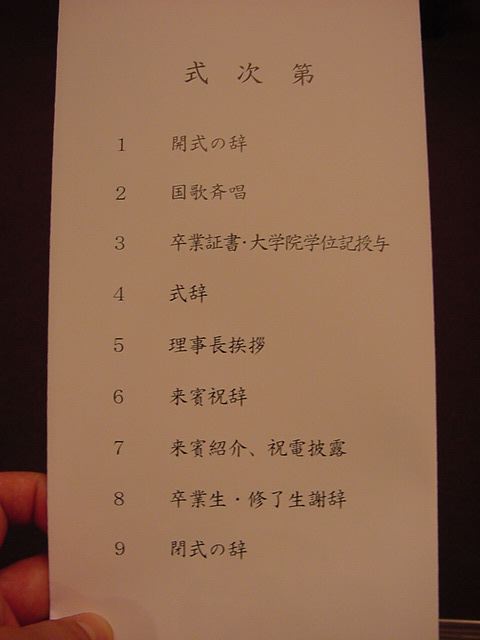 式 次 第
1 開式の辞
2 国歌斉唱
3 卒業証書・大学院学位記授与
4 式辞
5 理事長挨拶
6 来賓祝辞
7 来賓紹介、祝電披露
8 卒業生・修了生謝辞
9 閉式の辞